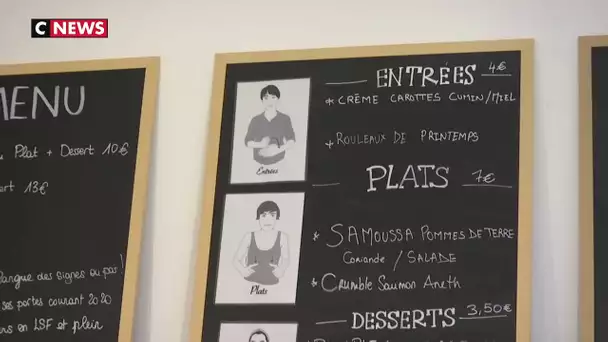 CNEWS
MENU
Plat + Dessert 10€
13€
langue des signes ou pas!
ses portes courant 2020
en LSF et plein
ENTRÉES 4€
* CRÈME CAROTTES CUMIN/MIEL
* ROULEAUX DE PRINTEMPS
Entrées
PLATS 7€
* SAMOUSSA POMMES DE TERRE
Coriande / SALADE
* Crumble Saumon Aneth
Plats
DESSERTS 3,50€